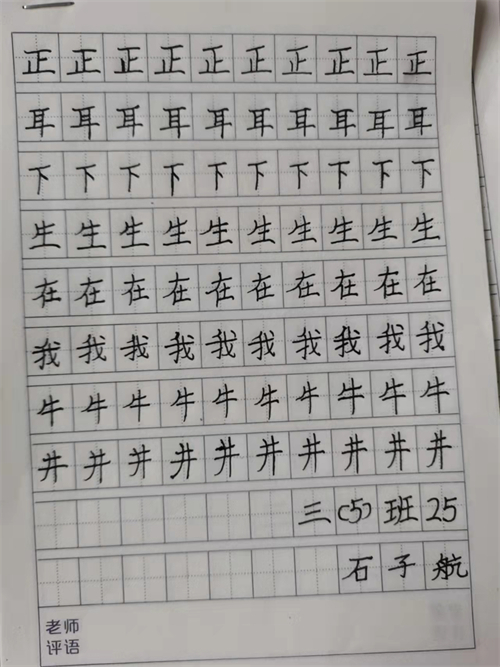 正正正正正正正正正正
耳耳耳耳耳耳耳耳耳耳
下下下下下下下下下下
生生生生生生生生生生
在在在在在在在在在在
我我我我我我我我我我
牛牛牛牛牛牛牛牛牛牛
井井井井井井井井井井
三(5)班25
石子航
老师
评语